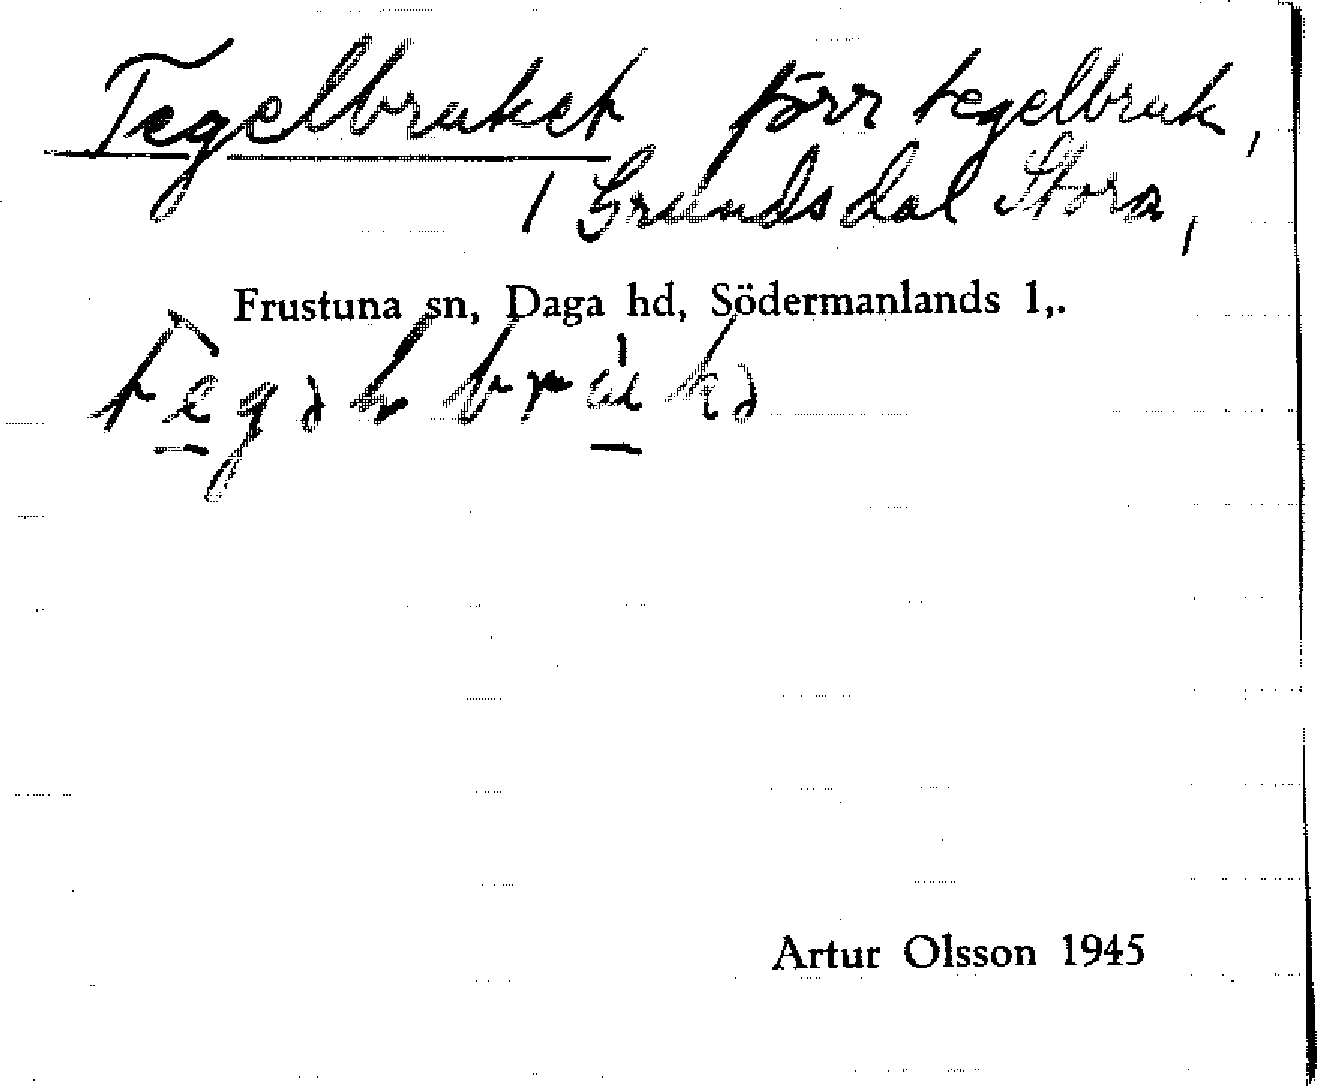 Tegelbruket förr tegelbruk,
/ Grundsdal Stora,
Frustuna sn, Daga hd, Södermanlands l,.
Artur Olsson 1945